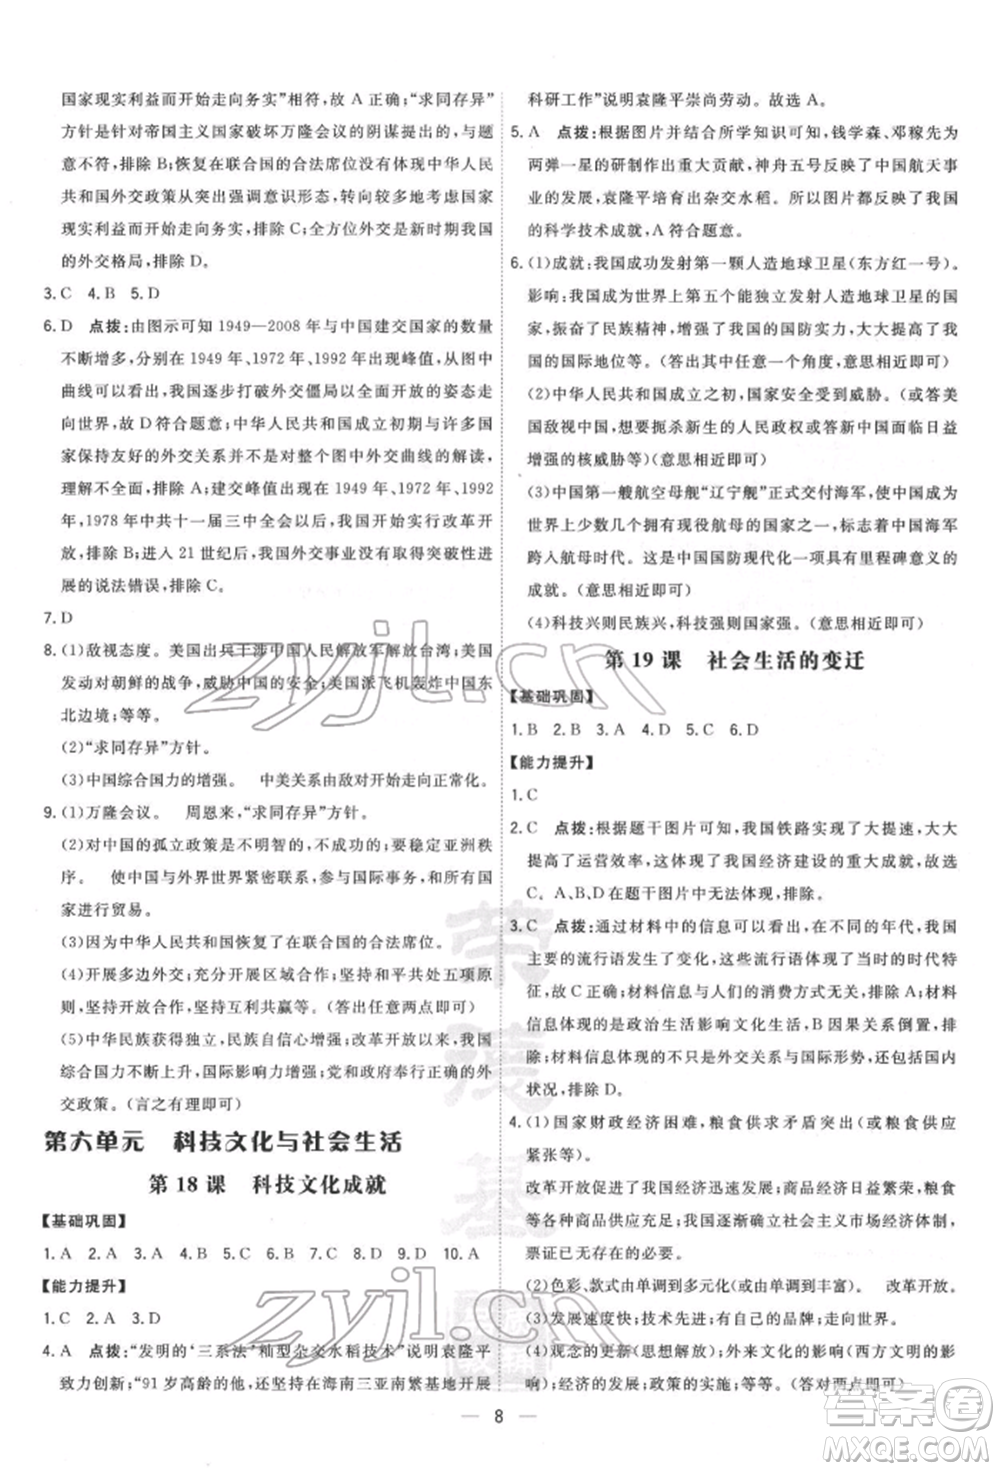 国家现实利益而开始走向务实”相符，故 A 正确；“求同存异”
方针是针对帝国主义国家破坏万隆会议的阴谋提出的，与题
意不符，排除 B；恢复在联合国的合法席位没有体现中华人民
共和国外交政策从强调意识形态，转变为根据国际形势和国
家现实利益而开始走向务实，排除 C；全方位外交是新时期我国
的外交格局，排除 D。
3. C  4. B  5. D
6. D  点拨：由图示可知 1949—2008 年与中国建交国家的数量
不断增多，分别在 1949 年、1972 年、1992 年出现峰值，从图中
曲线可以看出，我国逐步打破外交僵局以更加开放的姿态走
向世界，故 D 符合题意；中华人民共和国成立初期与许多国
家保持友好的外交关系并不是对整个图中外交曲线的解读，
理解不全面，排除 A；建交峰值是在 1949 年、1972 年、1992
年，1978 年中共十一届三中全会的召开，我国开始实行改革开
放，排除 B；进入 21 世纪后，我国外交事业没有取得突破性进
展的说法错误，排除 C。
7. D
8. (1)敌视态度。 美国出兵干涉中国人民解放军解放台湾；美国
发动对朝鲜的战争，威胁中国的安全；美国派飞机轰炸中国东
北边境；等等。
(2)“求同存异”方针。
(3)中国综合国力的增强。 中美关系由敌对开始走向正常化。
9. (1)万隆会议。 周恩来，“求同存异”方针。
(2)对中国的孤立政策是不明智的，如此才能够稳定亚洲秩
序。 使中国与外界世界紧密联系，参与国际事务，并与所有国
家进行贸易。
(3)因为中华人民共和国恢复了在联合国的合法席位。
(4)开展多边外交；充分开展区域合作；坚持和平共处五项原
则，坚持开放合作，坚持互利共赢等。（答出任意两点即可）
(5)中华民族获得了独立；综合国力不断增强与经济实力、国
际地位不断上升，国际影响力增强；党和政府采取了正确的外
交政策。（言之有理即可）
第六单元 科技文化与社会生活
第 18 课 科技文化成就
【基础巩固】
1. A  2. A  3. A  4. B  5. C  6. B  7. C  8. D  9. D  10. A
【能力提升】
1. C  2. A  3. D
4. A  点拨：“发明的‘三系法’籼型杂交水稻技术”说明袁隆平
致力创新；“91 岁高龄的他，还坚持在海南三亚南繁基地开展
科研工作”说明袁隆平崇尚劳动。故选 A。
5. A  点拨：根据图片并结合所学知识可知，钱学森、邓稼先为
两弹一星的研制作出重大贡献，神舟五号反映了中国航天事
业的发展，袁隆平培育出杂交水稻。所以图片都反映了我国
的科学技术成就，A 符合题意。
6. (1)成就：我国成功发射第一颗人造地球卫星（东方红一号）。
影响：我国成为世界上第五个能独立发射人造地球卫星的国
家，振奋了民族精神，增强了我国的国防实力，提高了我国
的国际地位等。（答出其中任意一个角度，意思相近即可）
(2)中华人民共和国成立之初，国家安全受到威胁。（或答美
国敌视中国，妄图扼杀新生的人民政权或答新中国面临日益
增强的核威胁等）（意思相近即可）
(3)中国第一艘航空母舰“辽宁舰”正式交付海军，使中国成为
世界上为数不多的几个拥有现役航母的国家之一，标志着中国海军
跨入航母时代。这是中国国防现代化一项具有里程碑意义的
成就。（意思相近即可）
(4)科技兴则民族兴，科技强则国家强。（意思相近即可）
第 19 课 社会生活的变迁
【基础巩固】
1. B  2. B  3. A  4. D  5. C  6. D
【能力提升】
1. C
2. C  点拨：根据题干图片可知，我国铁路实现了大提速，大大
提高了运营效率，这体现了我国经济建设的重大成就，故选
C。A、B、D 在题干图片中无法体现，排除。
3. C  点拨：通过材料中的信息可以看出，不同的年代，我国
主要的流行语发生了变化，这些流行语反映出明显的时代特
征，故 C 正确；材料信息与人们的消费方式没有关系，排除 A；材料
信息体现的是政治生活影响文化生活，B 因果关系倒置，排
除；材料信息体现的不只是外交关系与国际形势，还有国内
状况，排除 D。
4. (1)国家财政经济困难，粮食供求矛盾突出（或出现了粮食供应
紧张等）。
改革开放促进了我国经济迅速发展；商品经济日益繁荣，粮食
等各种商品供应充足；我国逐渐确立社会主义市场经济体制，
票证已无存在的必要。
(2)色彩、款式由单调到多元化（或由单调到丰富）。 改革开放。
(3)发展速度快；技术先进；拥有自主知识产权的品牌。
(4)观念的更新（思想解放）；外来文化的影响（西方文明的影
响）；政策的实施；技术的发展等。（答出两点即可）
8
zyjl.cn
zyjl.cn
荣
基
答案圈
MXQE.COM